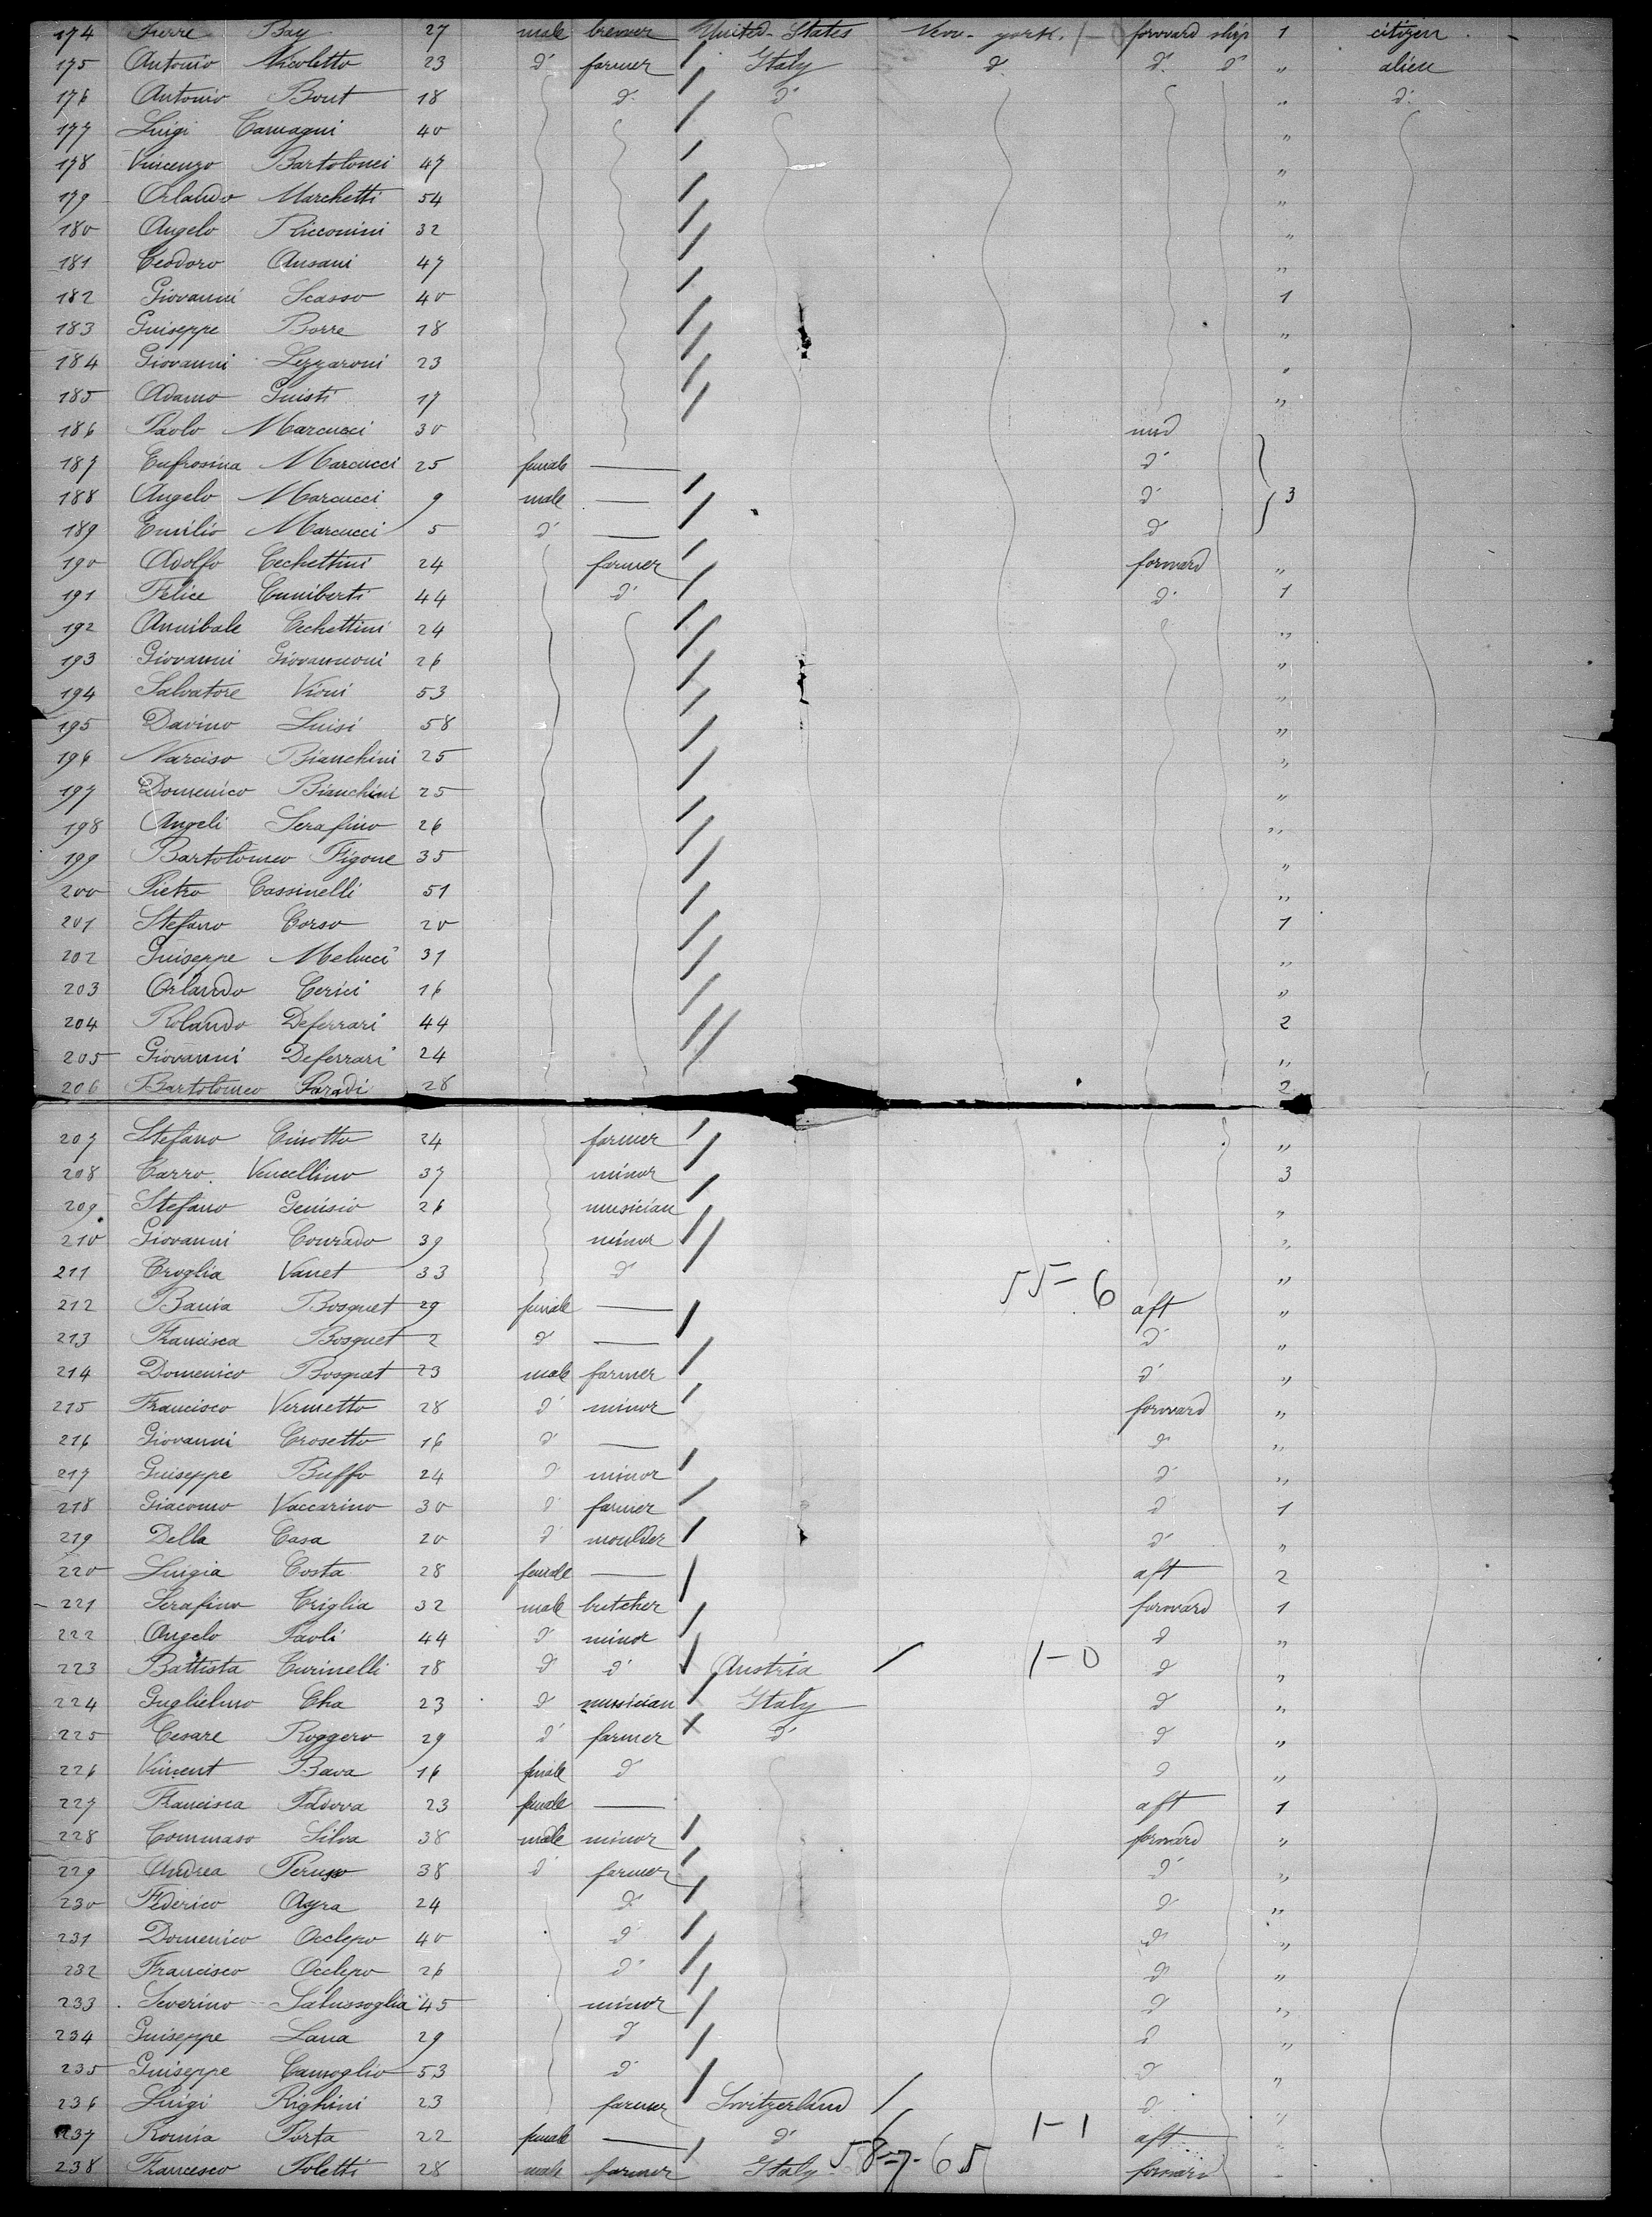 174 Pierre Bay 27 male brewer United-States New-york. 1-0 forward ship 1 citizen
175 Antonio Nicoletto 23 d° farmer Italy d° d° d° " alien
176 Antonio Bout 18 d° d° " d°
177 Luigi Carnagni 40 "
178 Vincenzo Bartolomei 47 "
179 Orlando Marchetti 54 "
180 Angelo Ricconini 32 "
181 Teodoro Ansani 47 "
182 Giovanni Scasso 40 1
183 Guiseppe Borre 18 "
184 Giovanni Lezzaroni 23 "
185 Adamo Guisti 17 "
186 Paolo Marcucci 30 mid
187 Eufrosina Marcucci 25 female — d°
188 Angelo Marcucci 9 male — d° 3
189 Emilio Marcucci 5 d° — d°
190 Adolfo Cechettini 24 farmer forward "
191 Felice Cuniberti 44 d° d° 1
192 Annibale Cechettini 24 "
193 Giovanni Giovannoni 26 "
194 Salvatore Vioni 53 "
195 Davino Luisi 58 "
196 Narciso Bianchini 25 "
197 Domenico Bianchini 25 "
198 Angeli Serafino 26 "
199 Bartolomeo Figone 35 "
200 Pietro Cassinelli 51 "
201 Stefano Corso 20 1
202 Guiseppe Melucci 31 "
203 Orlando Cerici 16 "
204 Rolando Deferrari 44 2
205 Giovanni Deferrari 24 "
206 Bartolomeo Paradi 28 2
207 Stefano Cinotto 24 farmer "
208 Carro. Vencellino 37 minor 3
209 Stefano Genisio 26 musician "
210 Giovanni Conrado 39 minor "
211 Croglia Vanet 33 d° "
55-6
212 Bania Bosquet 29 female — aft "
213 Francisca Bosquet 2 d° — d° "
214 Domenico Bosquet 23 male farmer d° "
215 Francisco Vermetto 28 d° minor forward "
216 Giovanni Crosetto 16 d° — d° "
217 Guiseppe Buffo 24 d° minor d° "
218 Giacomo Vaccarino 30 d° farmer d° 1
219 Della Casa 20 d° moulder d° "
220 Luigia Costa 28 female — aft 2
221 Serafino Criglia 32 male butcher forward 1
222 Angelo Paoli 44 d° minor d° "
223 Battista Curinelli 28 d° d° Austria 1-0 d° "
224 Guglielmo Cha 23 d° musician Italy d° "
225 Cesare Roggero 29 d° farmer d° d° "
226 Vincent Bava 16 female d° d° "
227 Francisca Padova 23 female — aft 1
228 Tommaso Silva 38 male minor forward "
229 Andrea Peruso 38 d° farmer d° "
230 Federico Ayra 24 d° d° "
231 Domenico Occlepo 40 d° d° "
232 Francisco Occlepo 26 d° d° "
233 Severino Salussoglia 45 minor d° "
234 Guiseppe Lana 29 d° d° "
235 Guiseppe Camoglio 53 d° d° "
236 Luigi Righini 23 farmer Switzerland d° "
237 Romia Porta 22 female — d° 1-1 aft "
238 Francesco Poletti 28 male farmer Italy 58-7-65 forward "